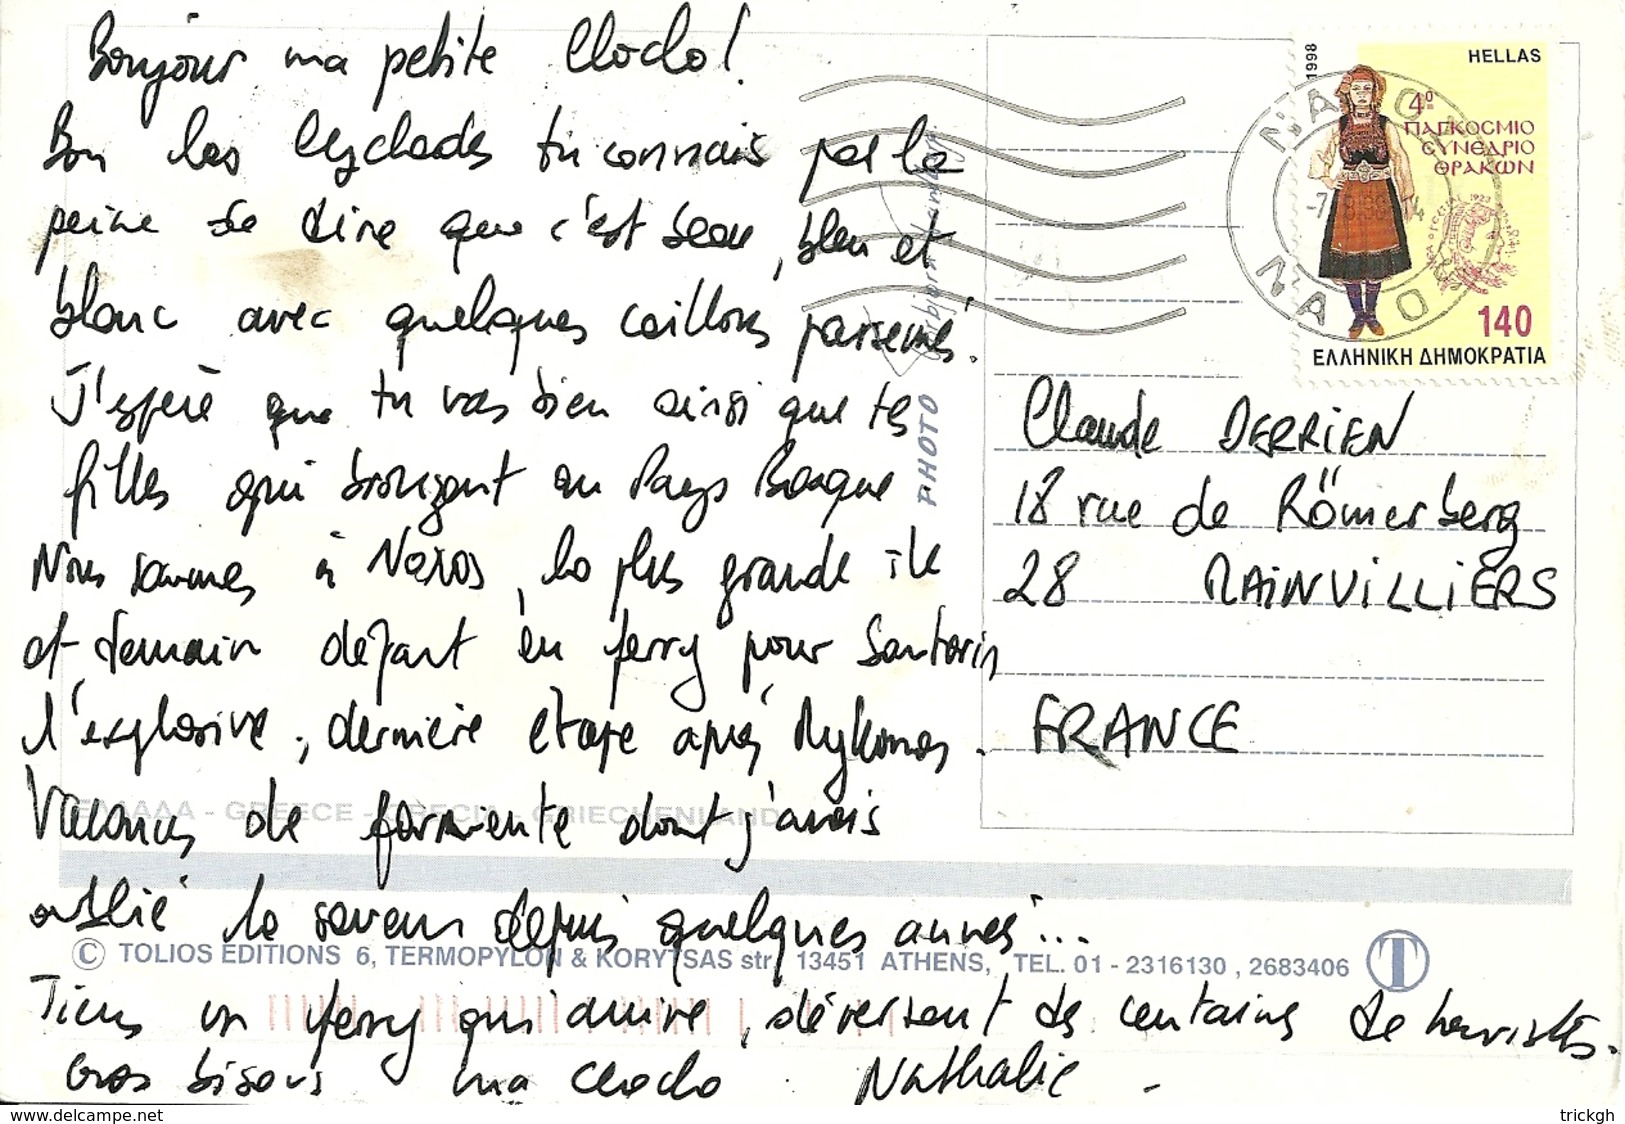 Bonjour ma petite Cloclo!
Bon les Cyclades tu connais pas la
peine de dire que c'est beau, bleu et
blanc avec quelques cailloux parsemés.
J'espère que tu vas bien ainsi que tes
filles qui bronzent au Pays Basque
Nous sommes à Naxos, la plus grande île
et demain départ en ferry pour Santorin
l'explosive, dernière étape après Mykonos.
Vacances de farniente dont j'avais
oublié la saveur depuis quelques années...
Tiens un ferry qui arrive, déversant des centaines de touristes.
Gros bisous ma Cloclo. Nathalie -
Claude DERRIEN
18 rue de Römerberg
28 MAINVILLIERS
FRANCE
1998
HELLAS
4º
ΠΑΓΚΟСΜΙΟ
СΥΝЄΔΡΙΟ
ΘΡΑΚΩΝ
140
ΕΛΛΗΝΙΚΗ ΔΗΜΟΚΡΑΤΙΑ
PHOTO
ΕΛΛΑΔΑ - GREECE - GRECIA - GRIECHENLAND
© TOLIOS EDITIONS 6, TERMOPYLON & KORYTSAS str. 13451 ATHENS, TEL. 01 - 2316130 , 2683406 T
www.delcampe.net
trickgh